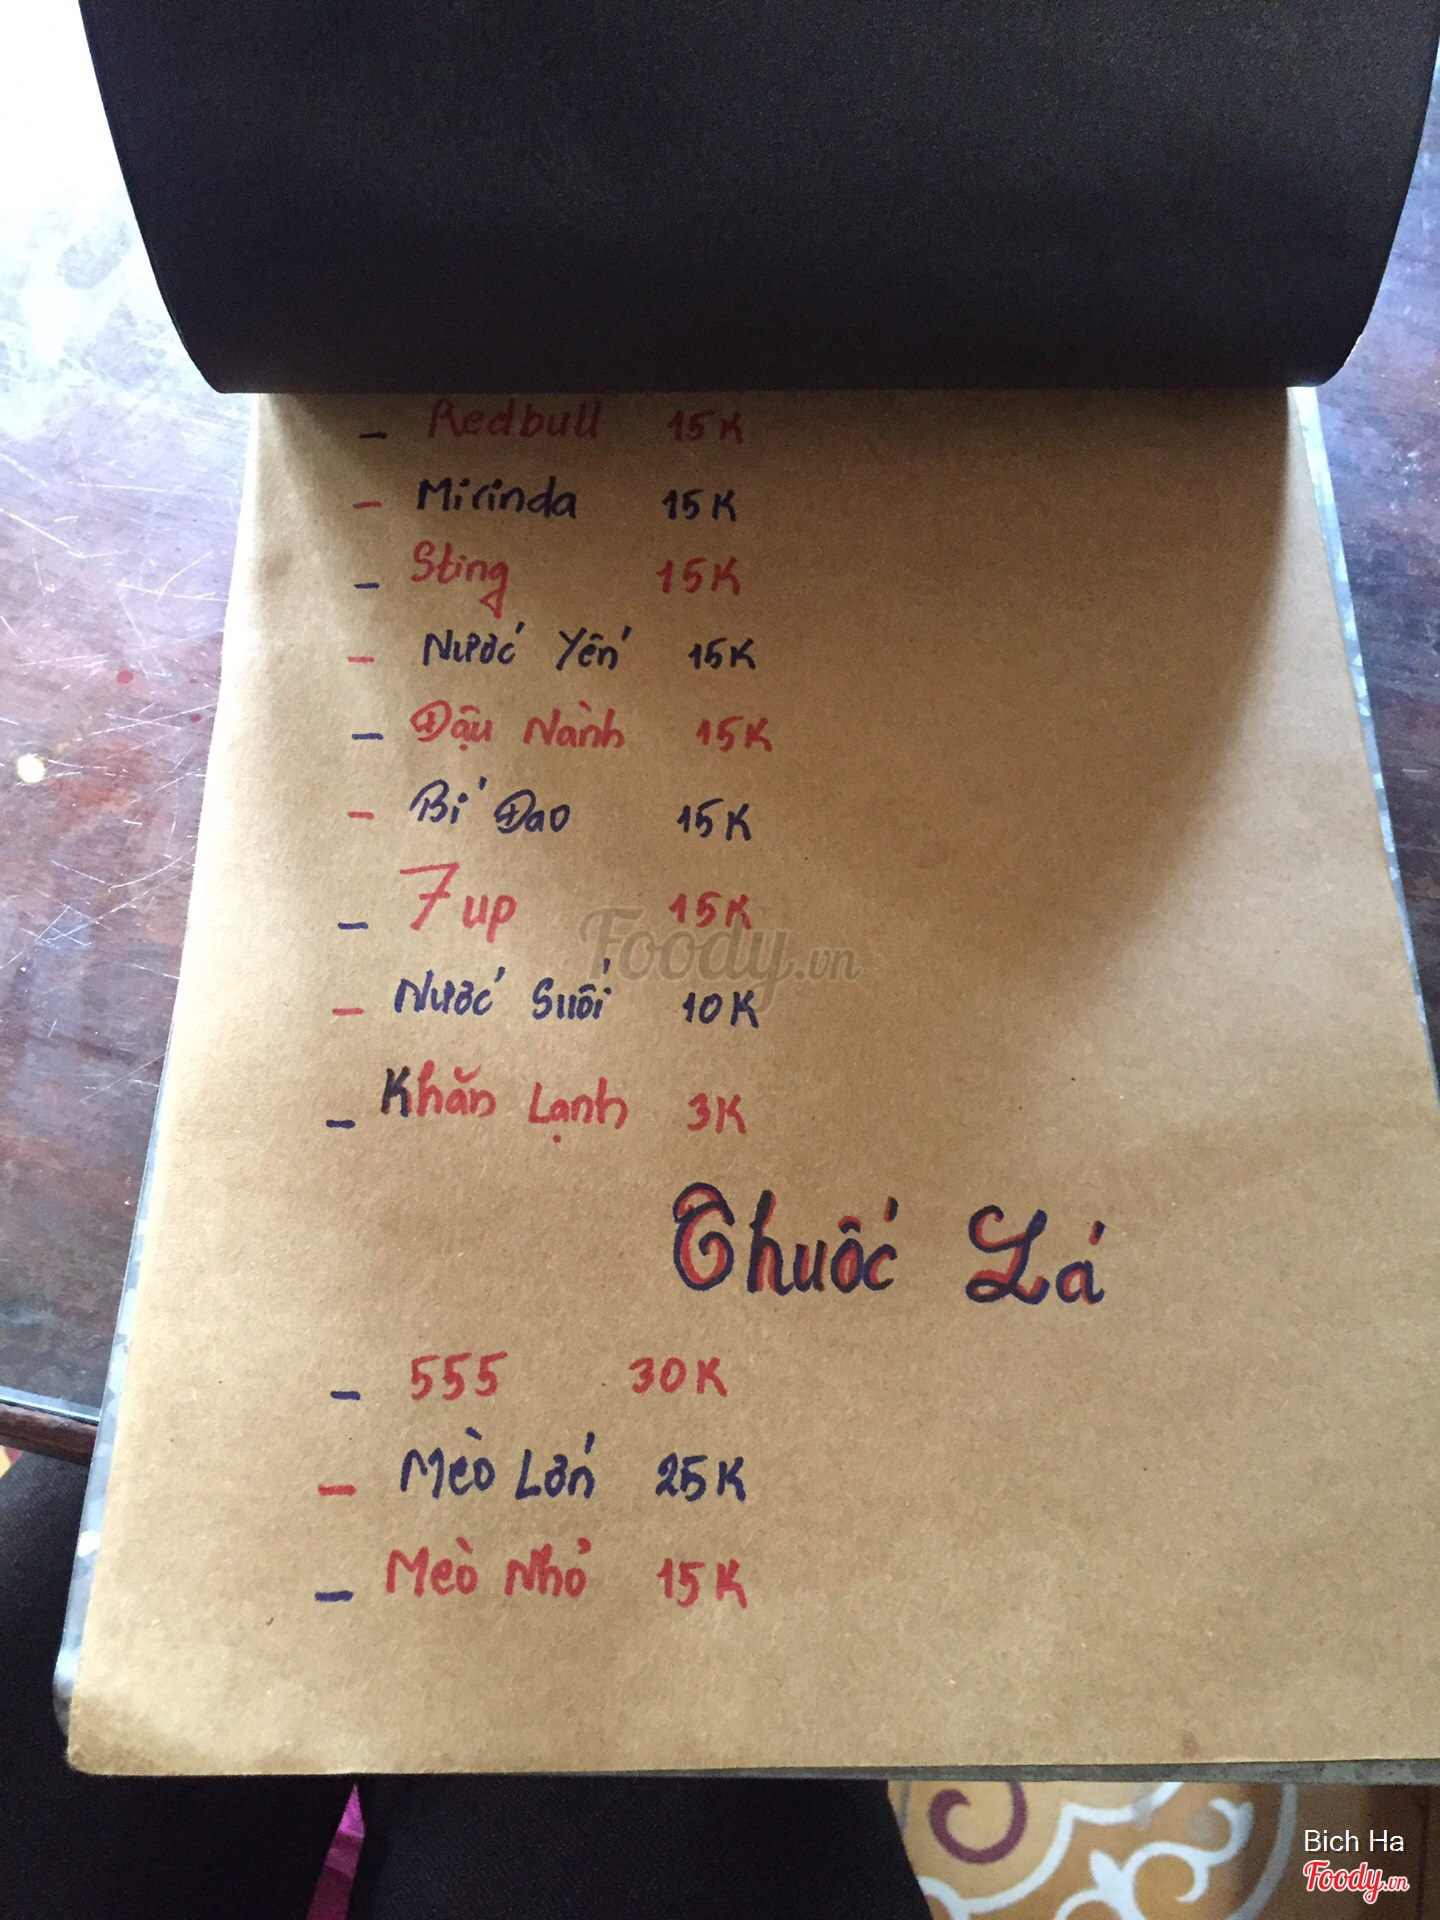 - Redbull 15K
- Mirinda 15K
- Sting 15K
- Nước Yến 15K
- Đậu Nành 15K
- Bí Đao 15K
- 7up 15K
Foody.vn
- Nước Suối 10K
- Khăn Lạnh 3K
Thuốc Lá
- 555 30K
- Mèo Lớn 25K
- Mèo Nhỏ 15K
Bich Ha
Foody.vn